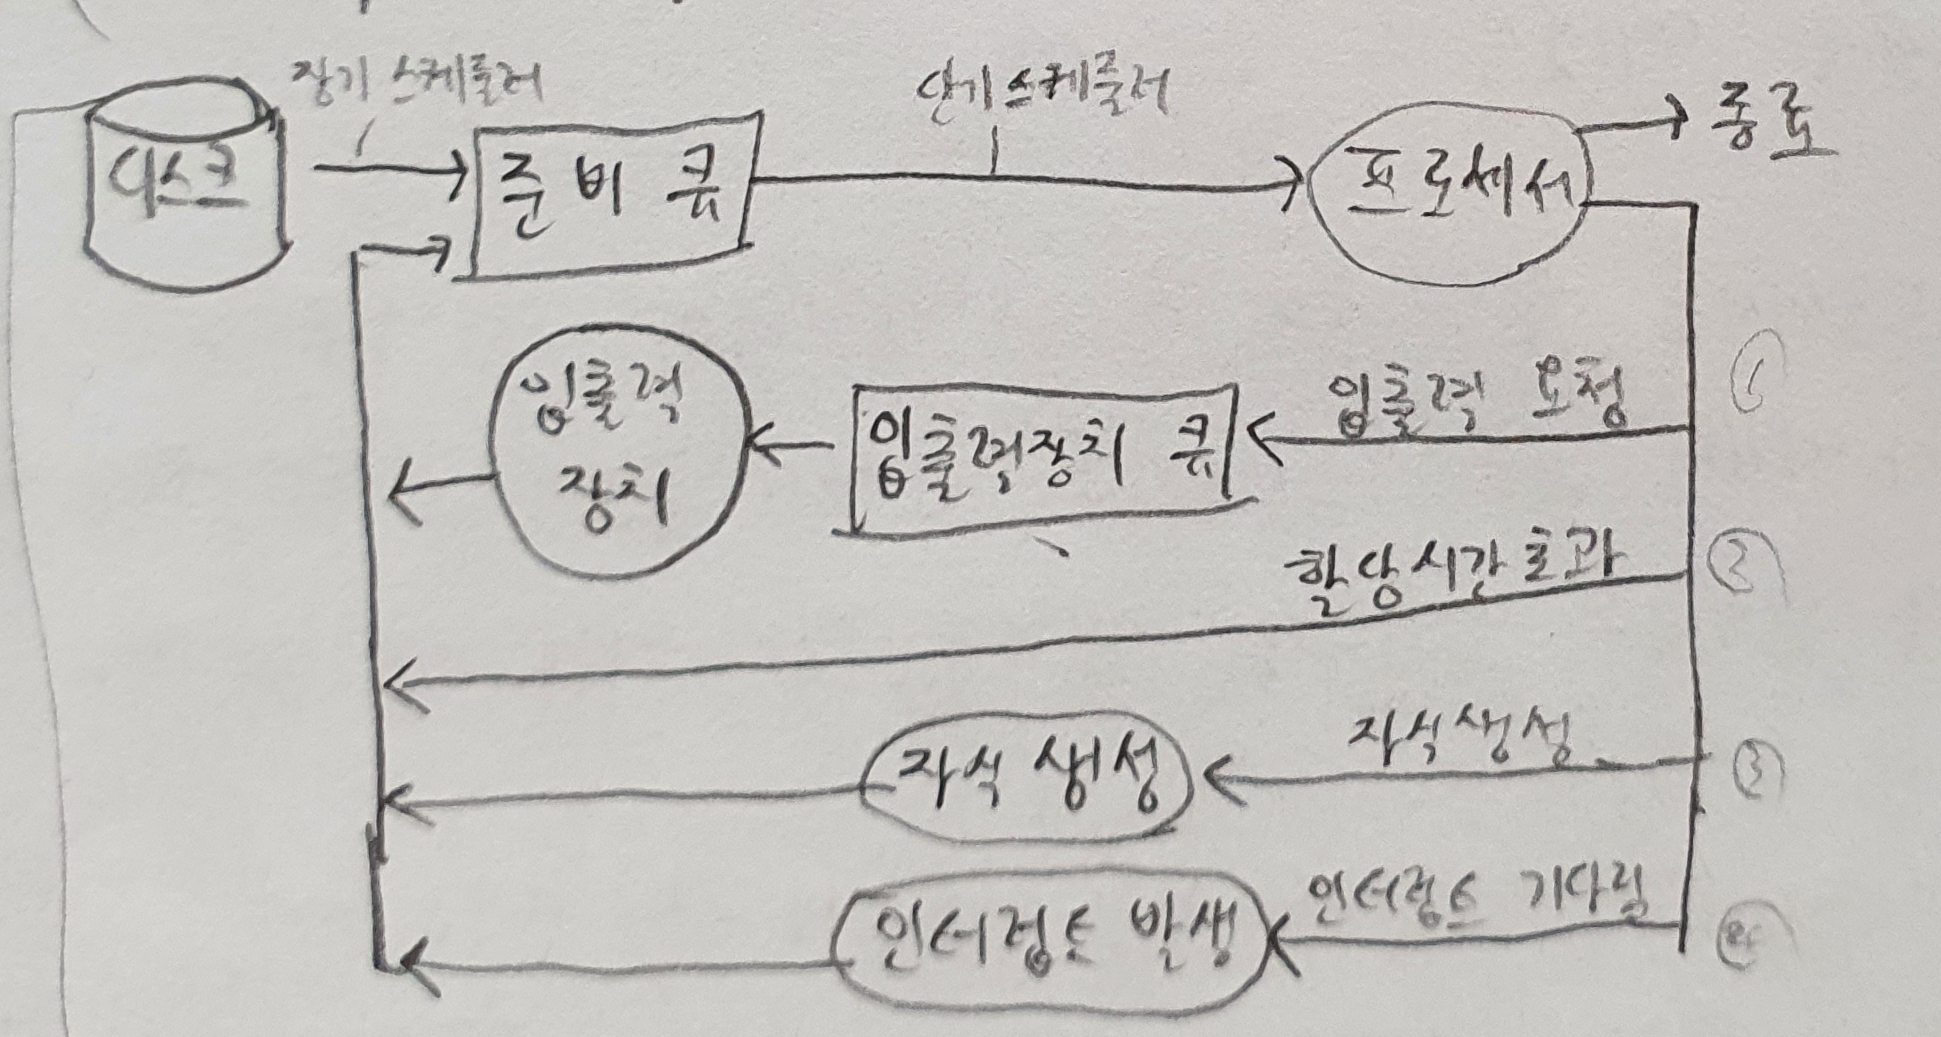 장기 스케줄러
단기 스케줄러
디스크
준비 큐
프로세서
종료
입출력
장치
입출력장치 큐
입출력 요청
①
할당시간초과
②
자식 생성
자식생성
③
인터럽트 발생
인터럽트 기다림
④